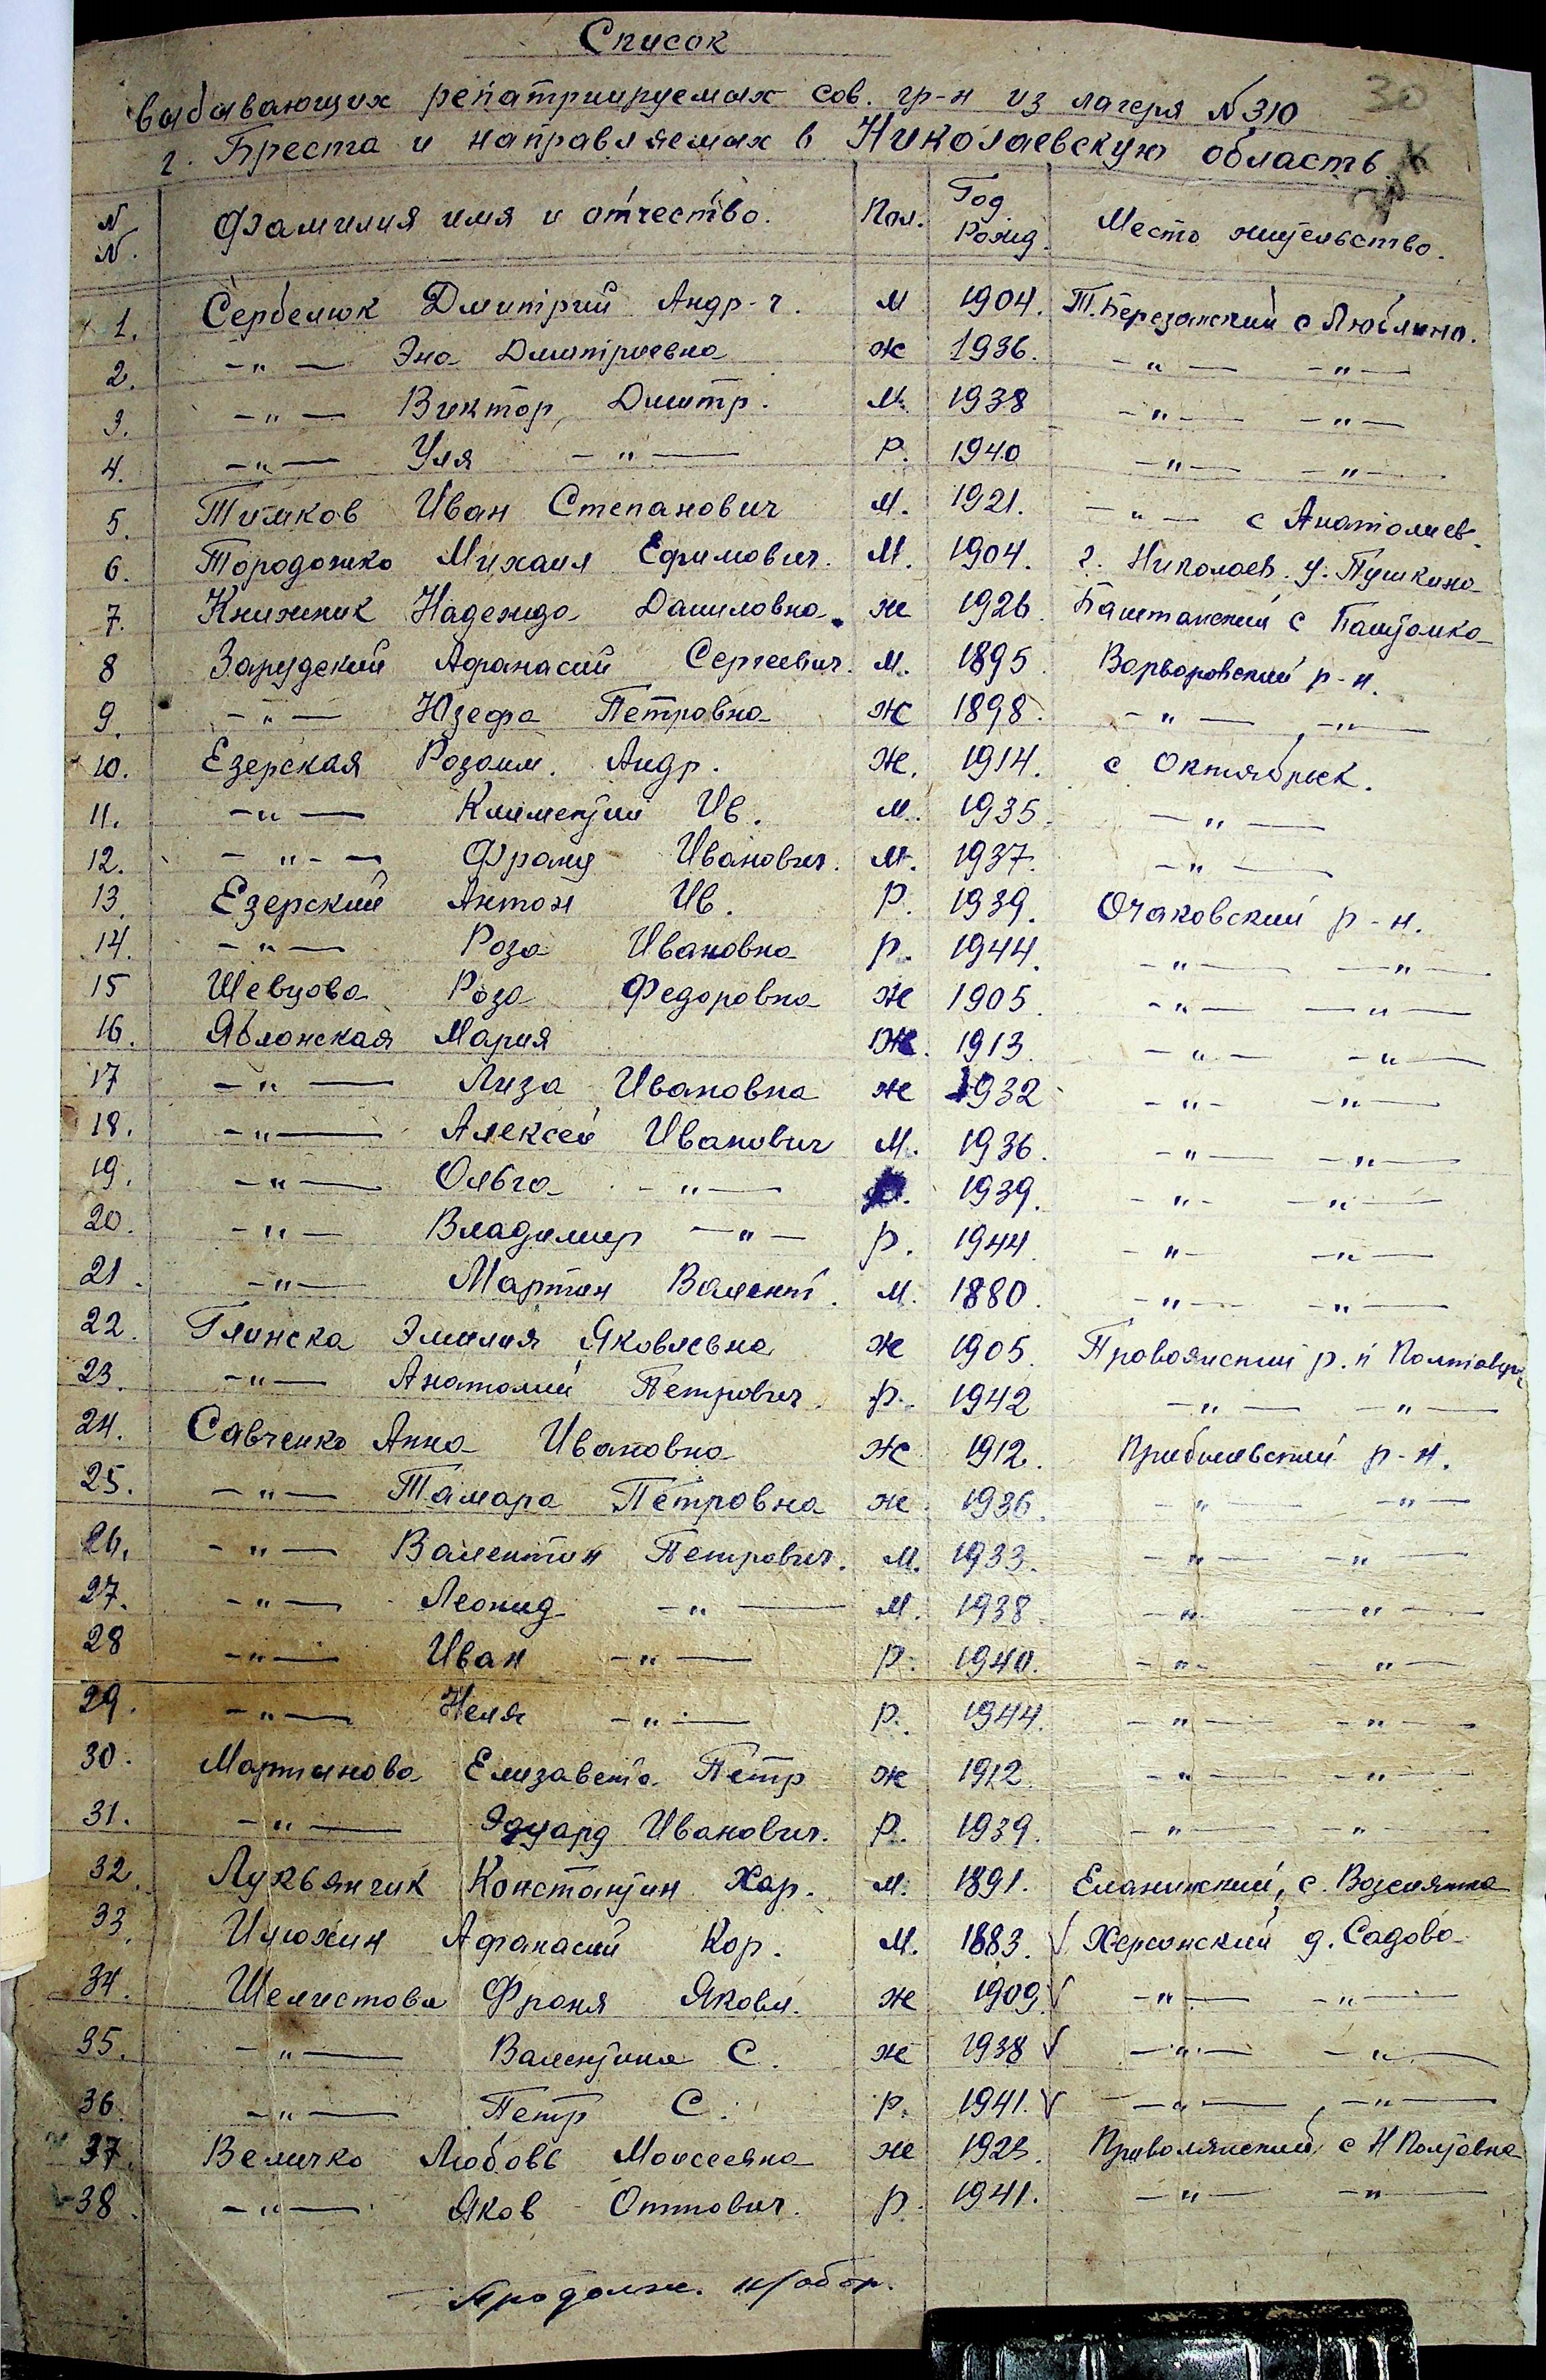 Список
30
выбывающих репатриируемых сов. гр-н из лагеря №310
г. Бреста и направляемых в Николаевскую область
N N. Фамилия имя и отчество. Пол. Год Рожд. Место жительство.
1. Сербелюк Дмитрий Андр-ч. М 1904. Т.Березанский с Люблино.
2. -"- Эна Дмитриевна ж 1936. -"- -"-
3. -"- Виктор Дмитр. М. 1938 -"- -"-
4. -"- Уля -"- Р. 1940 -"- -"-
5. Тимков Иван Степанович М. 1921. -"- с Анатолиев.
6. Тородожко Михаил Ефимович. М. 1904. г. Николаев. у. Пушкина
7. Книжник Надежда Даниловна. ж 1926 Баштанский с Баштанка
8 Зарудский Афанасий Сергеевич. М. 1895 Варваровский р-н.
9. -"- Юзефа Петровна Ж 1898. -"- -"-
10. Езерская Розалия. Андр. Ж. 1914. с Октябрьск.
11. -"- Климентий Ив. М. 1935. -"-
12. -"- Франц Иванович. М. 1937. -"-
13. Езерский Антон Ив. Р. 1939. Очаковский р-н.
14. -"- Роза Ивановна р. 1944. -"- -"-
15 Шевцова Роза Федоровна Ж 1905. -"- -"-
16. Яблонская Мария Ж. 1913. -"- -"-
17 -"- Лиза Ивановна ж 1932 -"- -"-
18. -"- Алексей Иванович М. 1936. -"- -"-
19. -"- Ольга -"- 1939. -"- -"-
20. -"- Владимир -"- р. 1944. -"- -"-
21. -"- Мартин Валент. М. 1880. -"- -"-
22. Глинска Эмилия Яковлевна Ж 1905. р.н
23. -"- Анатолий Петрович. р. 1942 -"- -"-
24. Савченко Анна Ивановна Ж 1912. р-н.
25. -"- Тамара Петровна ж 1936. -"- -"-
26. -"- Валентин Петрович. М. 1933. -"- -"-
27. -"- Леонид -"- М. 1938. -"- -"-
28 -"- Иван -"- Р. 1940. -"- -"-
29. -"- Неля -"- р. 1944. -"- -"-
30. Мартинова Елизавета Петр ж 1912 -"- -"-
31. -"- Эдуард Иванович. Р. 1939. -"- -"-
32. Лукьянчик Константин Хар. М. 1891. Еланинский, с. Возсиянка
33. Илюхин Афанасий Кор. М. 1883. √ Херсонский д. Садова
34. Шелистова Франя Яковл. ж 1909. √ -"- -"-
35. -"- Валентина С. ж 1938 √ -"- -"-
36. -"- Петр С. р. 1941. √ -"- -"-
37. Величко Любовь Моисеевна ж Привольянский с Н Полтавка
38. -"- Яков Оттович. р. 1941. -"- -"-
Продолж. н/обор.